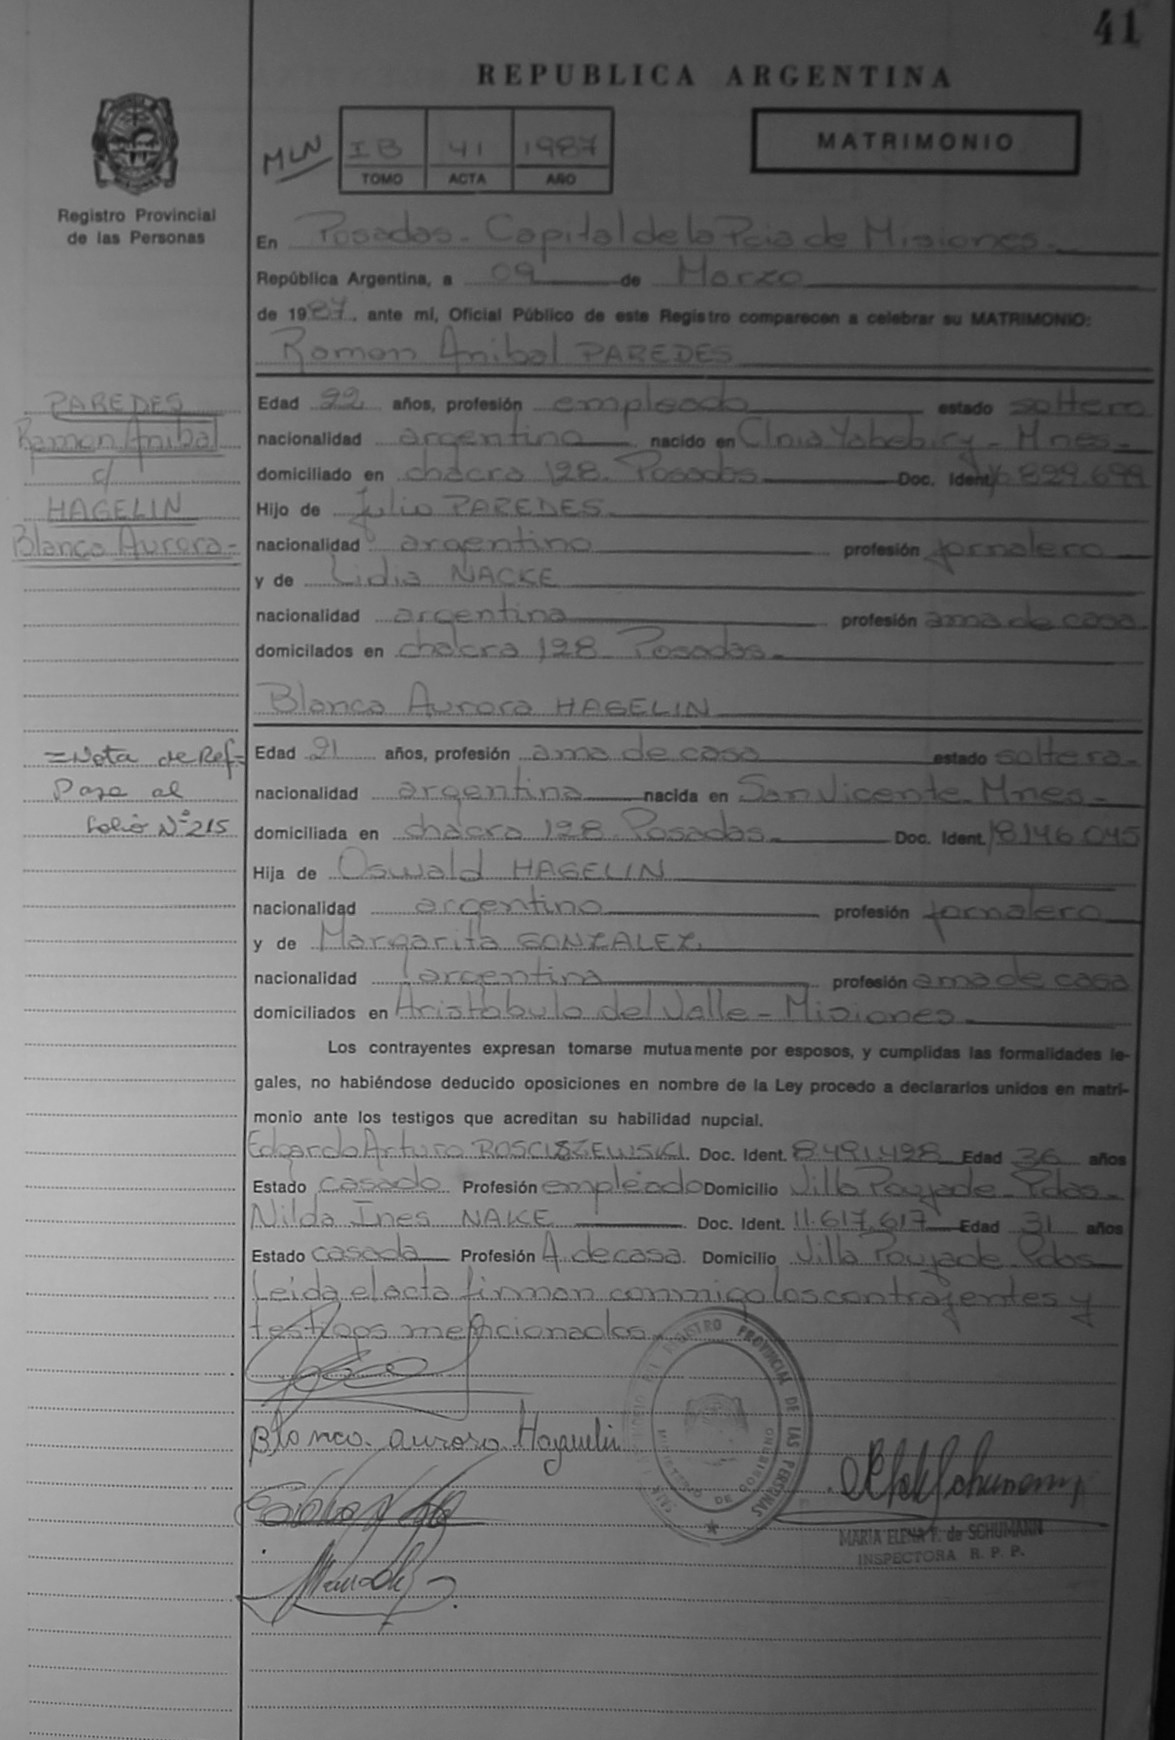 41
REPUBLICA ARGENTINA
MLN
IB 41 1987
TOMO ACTA AÑO
MATRIMONIO
Registro Provincial
de las Personas
En Posadas - Capital de la Pcia de Misiones -
República Argentina, a 09 de Marzo
de 1987, ante mí, Oficial Público de este Registro comparecen a celebrar su MATRIMONIO:
Ramon Anibal PAREDES
PAREDES
Ramon Anibal
c/
HAGELIN
Blanca Aurora -
Edad 22 años, profesión empleado estado soltero
nacionalidad argentino nacido en Clnia Yabebiry - Mnes -
domiciliado en chacra 128. Posadas Doc. Ident. 16829.699
Hijo de Julio PAREDES.
nacionalidad argentino profesión jornalero
y de Lidia NACKE
nacionalidad argentina profesión ama de casa
domicilados en chacra 128 - Posadas -
Blanca Aurora HAGELIN
=Nota de Ref=
Pase al
folio Nº 215
Edad 21 años, profesión ama de casa estado soltera -
nacionalidad argentina nacida en San Vicente - Mnes -
domiciliada en chacra 128. Posadas - Doc. Ident. 18146.045
Hija de Oswald HAGELIN
nacionalidad argentino profesión jornalero
y de Margarita GONZALEZ.
nacionalidad argentina profesión ama de casa
domiciliados en Aristóbulo del Valle - Misiones -
Los contrayentes expresan tomarse mutuamente por esposos, y cumplidas las formalidades le-
gales, no habiéndose deducido oposiciones en nombre de la Ley procedo a declararlos unidos en matri-
monio ante los testigos que acreditan su habilidad nupcial.
Edgardo Arturo ROSCISZEWSKI. Doc. Ident. 8.491.498 Edad 36 años
Estado casado Profesión empleado Domicilio Villa Poujade - Pdas -
Nilda Ines NAKE Doc. Ident. 11.617.617 Edad 31 años
Estado casada Profesión A. de casa. Domicilio Villa Poujade Pdas
Leida el acta firman conmigo los contrayentes y
testigos mencionados.
REGISTRO PROVINCIAL DE LAS PERSONAS
MINISTERIO DE GOBIERNO
Blanca Aurora Haguelin
MARIA ELENA F. de SCHUMANN
INSPECTORA R. P. P.